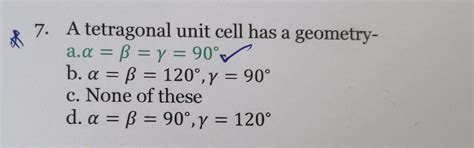 7. A tetragonal unit cell has a geometry-
a.α = β = γ = 90°
b. α = β = 120°, γ = 90°
c. None of these
d. α = β = 90°, γ = 120°